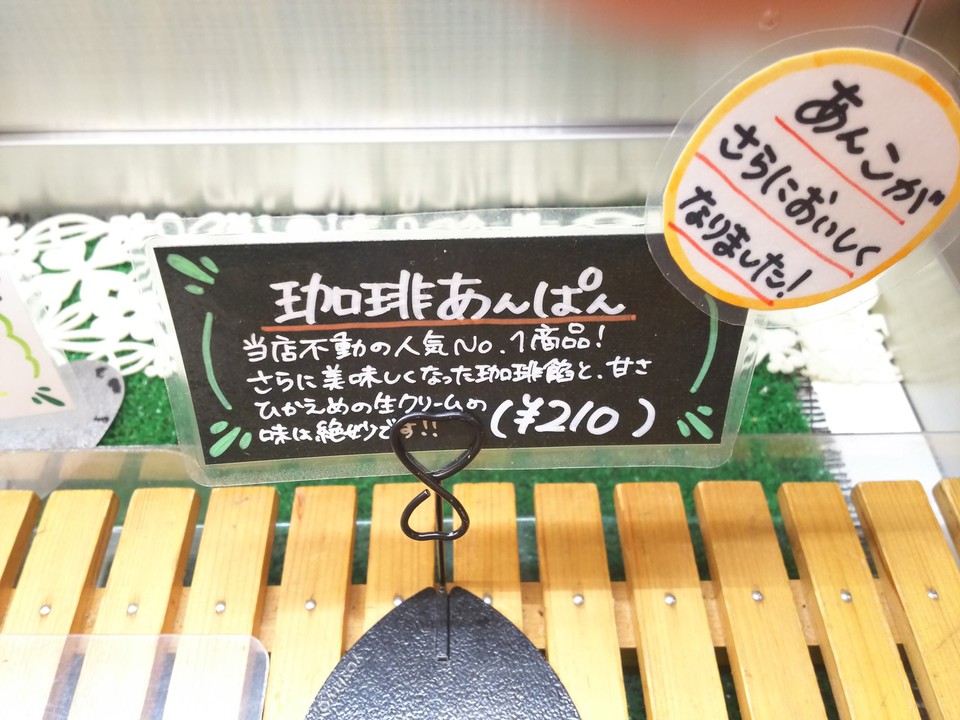 珈琲あんぱん
当店不動の人気No.1商品!
さらに美味しくなった珈琲餡と、甘さ
ひかえめの生クリームの
味は絶妙です!!
(¥210)
あんこが
さらにおいしく
なりました!